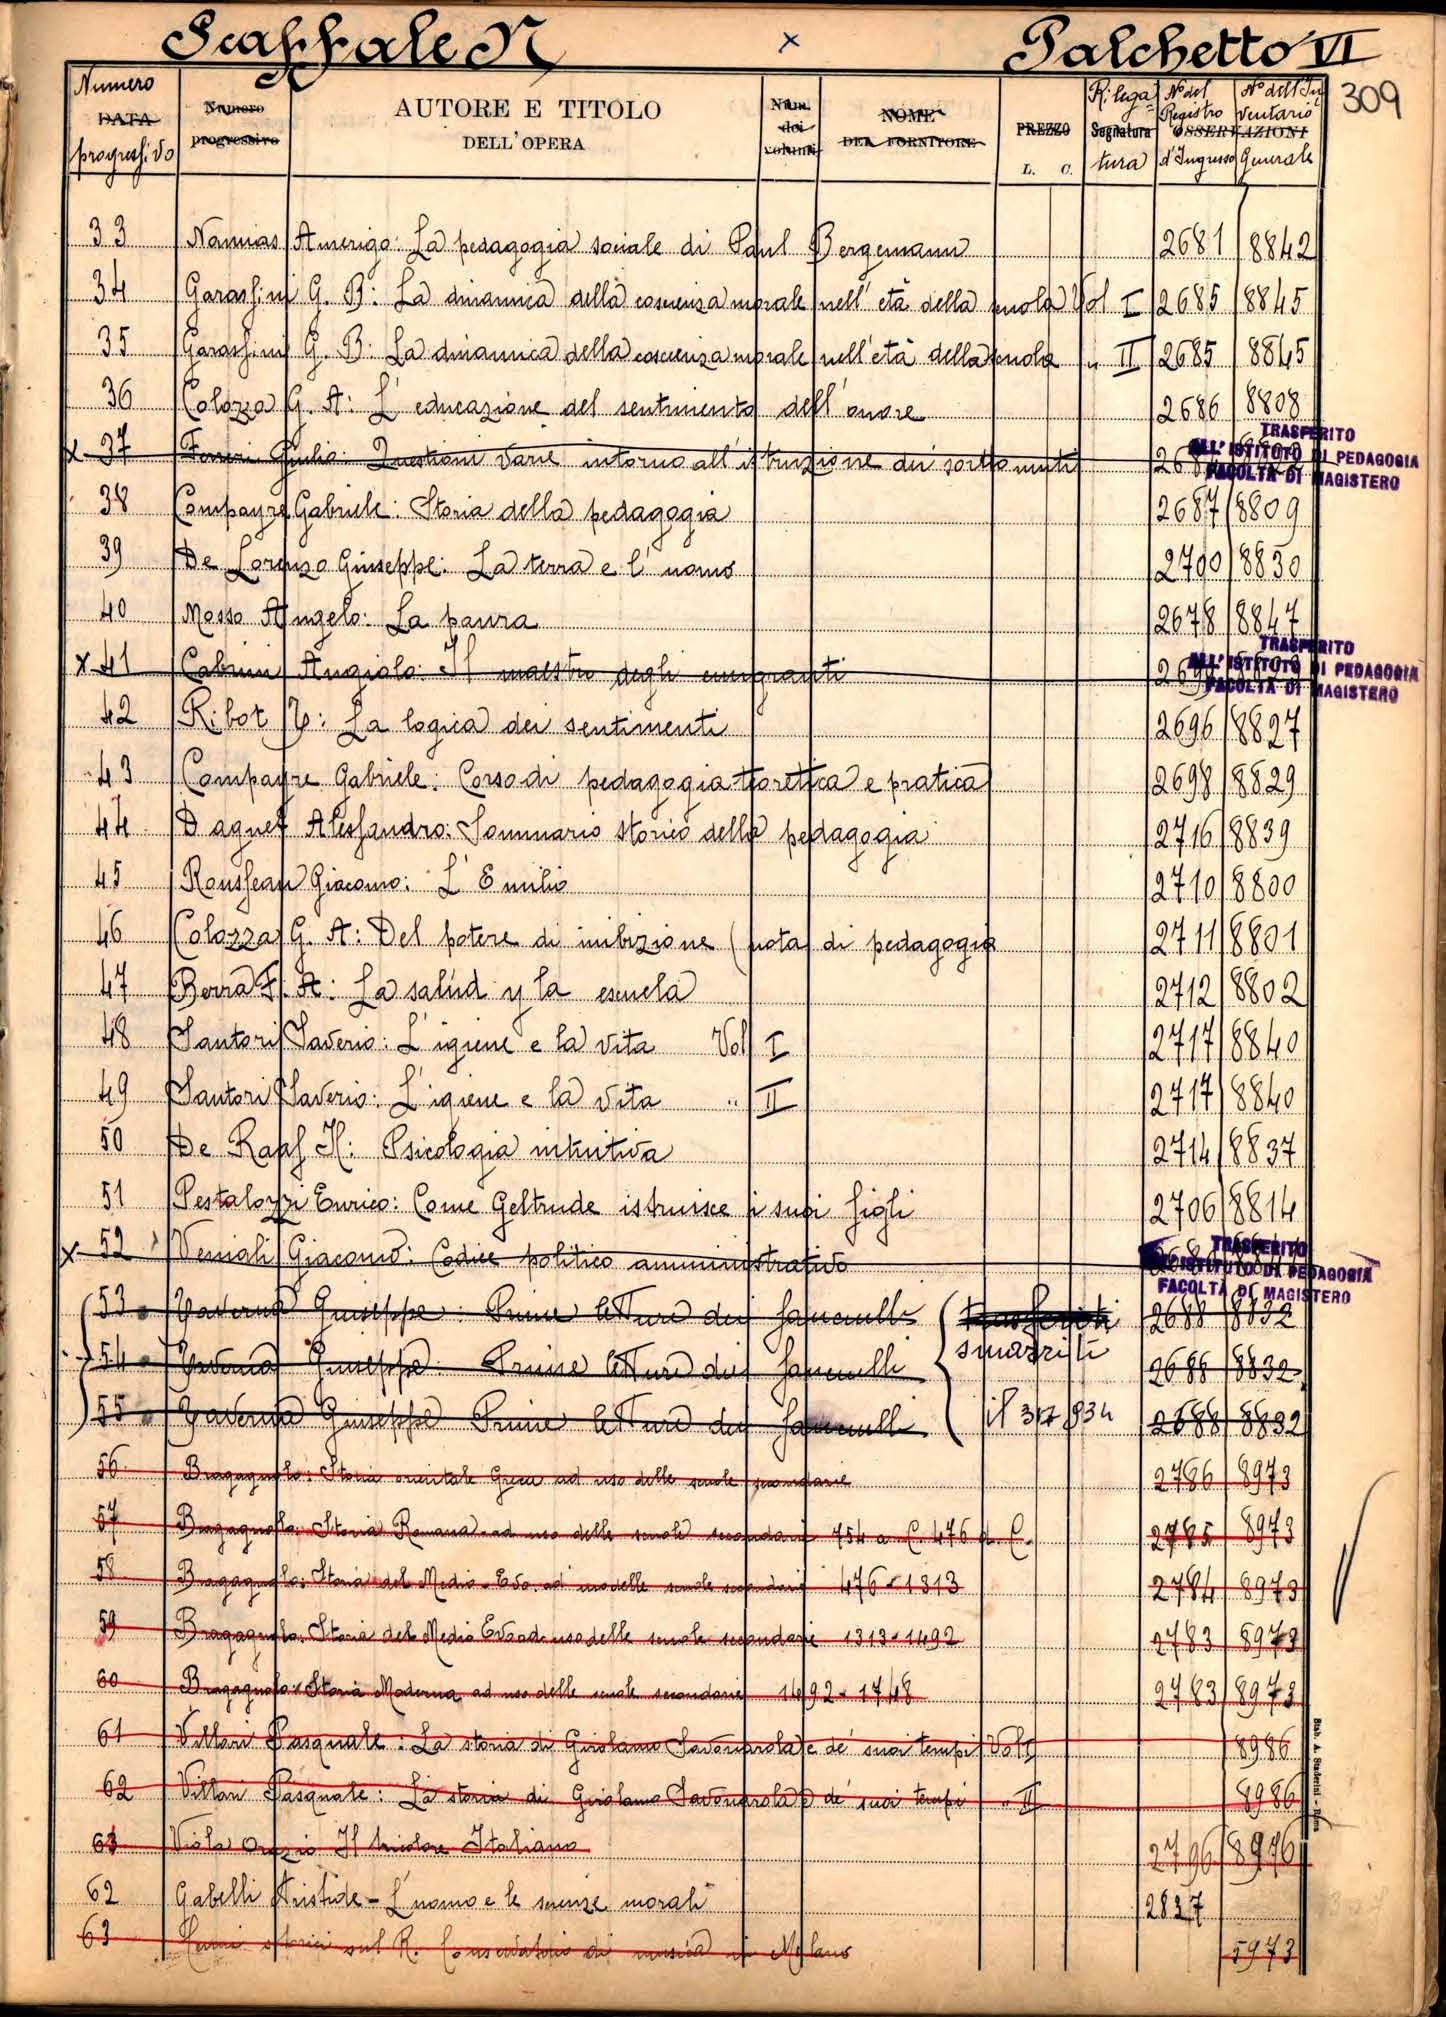 Scaffale N × Palchetto VI
309
Numero DATA progressivo Numero progressivo AUTORE E TITOLO DELL'OPERA Num. dei volumi NOME DEL FORNITORE PREZZO L. C. Rilega= Segnatura tura Nº del Registro d'Ingresso OSSERVAZIONI Nº dell'In ventario Generale
33 Namias Amerigo: La pedagogia sociale di Paul Bergemann 2681 8842
34 Garassini G. B: La dinamica della coscienza morale nell'età della scuola Vol I 2685 8845
35 Garassini G. B: La dinamica della coscienza morale nell'età della scuola " II 2685 8845
36 Colozza G. A: L'educazione del sentimento dell'onore 2686 8808
x 37 Ferreri Giulio: Questioni varie intorno all'istruzione dei sordomuti
TRASFERITO
ALL'ISTITUTO DI PEDAGOGIA
FACOLTÀ DI MAGISTERO
38 Compayre Gabriele: Storia della pedagogia 2687 8809
39 De Lorenzo Giuseppe: La terra e l'uomo 2700 8830
40 Mosso Angelo: La paura 2678 8847
x 41 Cabrini Angiolo: Il maestro degli emigranti
TRASFERITO
ALL'ISTITUTO DI PEDAGOGIA
FACOLTÀ DI MAGISTERO
42 Ribot T: La logica dei sentimenti 2696 8827
43 Compayre Gabriele: Corso di pedagogia teoretica e pratica 2698 8829
44 Daguet Alessandro: Sommario storico della pedagogia 2716 8839
45 Rousseau Giacomo: L'Emilio 2710 8800
46 Colozza G. A: Del potere di inibizione (nota di pedagogia 2711 8801
47 Berra F. A: La salúd y la escuela 2712 8802
48 Santori Saverio: L'igiene e la vita Vol I 2717 8840
49 Santori Saverio: L'igiene e la vita " II 2717 8840
50 De H: Psicologia intuitiva 2714 8837
51 Pestalozzi Enrico: Come Geltrude istruisce i suoi figli 2706 8814
x 52 Veniali Giacomo: Codice politico amministrativo
TRASFERITO
ALL'ISTITUTO DI PEDAGOGIA
FACOLTÀ DI MAGISTERO
53 Taverna Giuseppe: Prime letture dei fanciulli trasferiti 2688 8832
54 Taverna Giuseppe: Prime letture dei fanciulli smarriti 2688 8832
55 Taverna Giuseppe Prime letture dei fanciulli il 2688 8832
56 Bragagnolo: Storia orientale Greca ad uso delle scuole secondarie 2786 8973
57 Bragagnolo: Storia Romana ad uso delle scuole secondarie 754 a C. 476 d. C. 2785 8973
58 Bragagnolo: Storia del Medio-Evo ad uso delle scuole secondarie 476-1313 2784 8973
59 Bragagnolo: Storia del Medio Evo ad uso delle scuole secondarie 1313-1492 2783 8973
60 Bragagnolo: Storia Moderna ad uso delle scuole secondarie 1492-1748 2783 8973
61 Villari Pasquale: La storia di Girolamo Savonarola e de' suoi tempi Vol I 8986
62 Villari Pasquale: La storia di Girolamo Savonarola e de' suoi tempi " II 8986
63 Viola Orazio Il tricolore Italiano 2796 8976
62 Gabelli Aristide - L'uomo e le scienze morali 2827
63 Cenni storici sul R. Conservatorio di musica di Milano 5973
Stab. A. Staderini - Roma